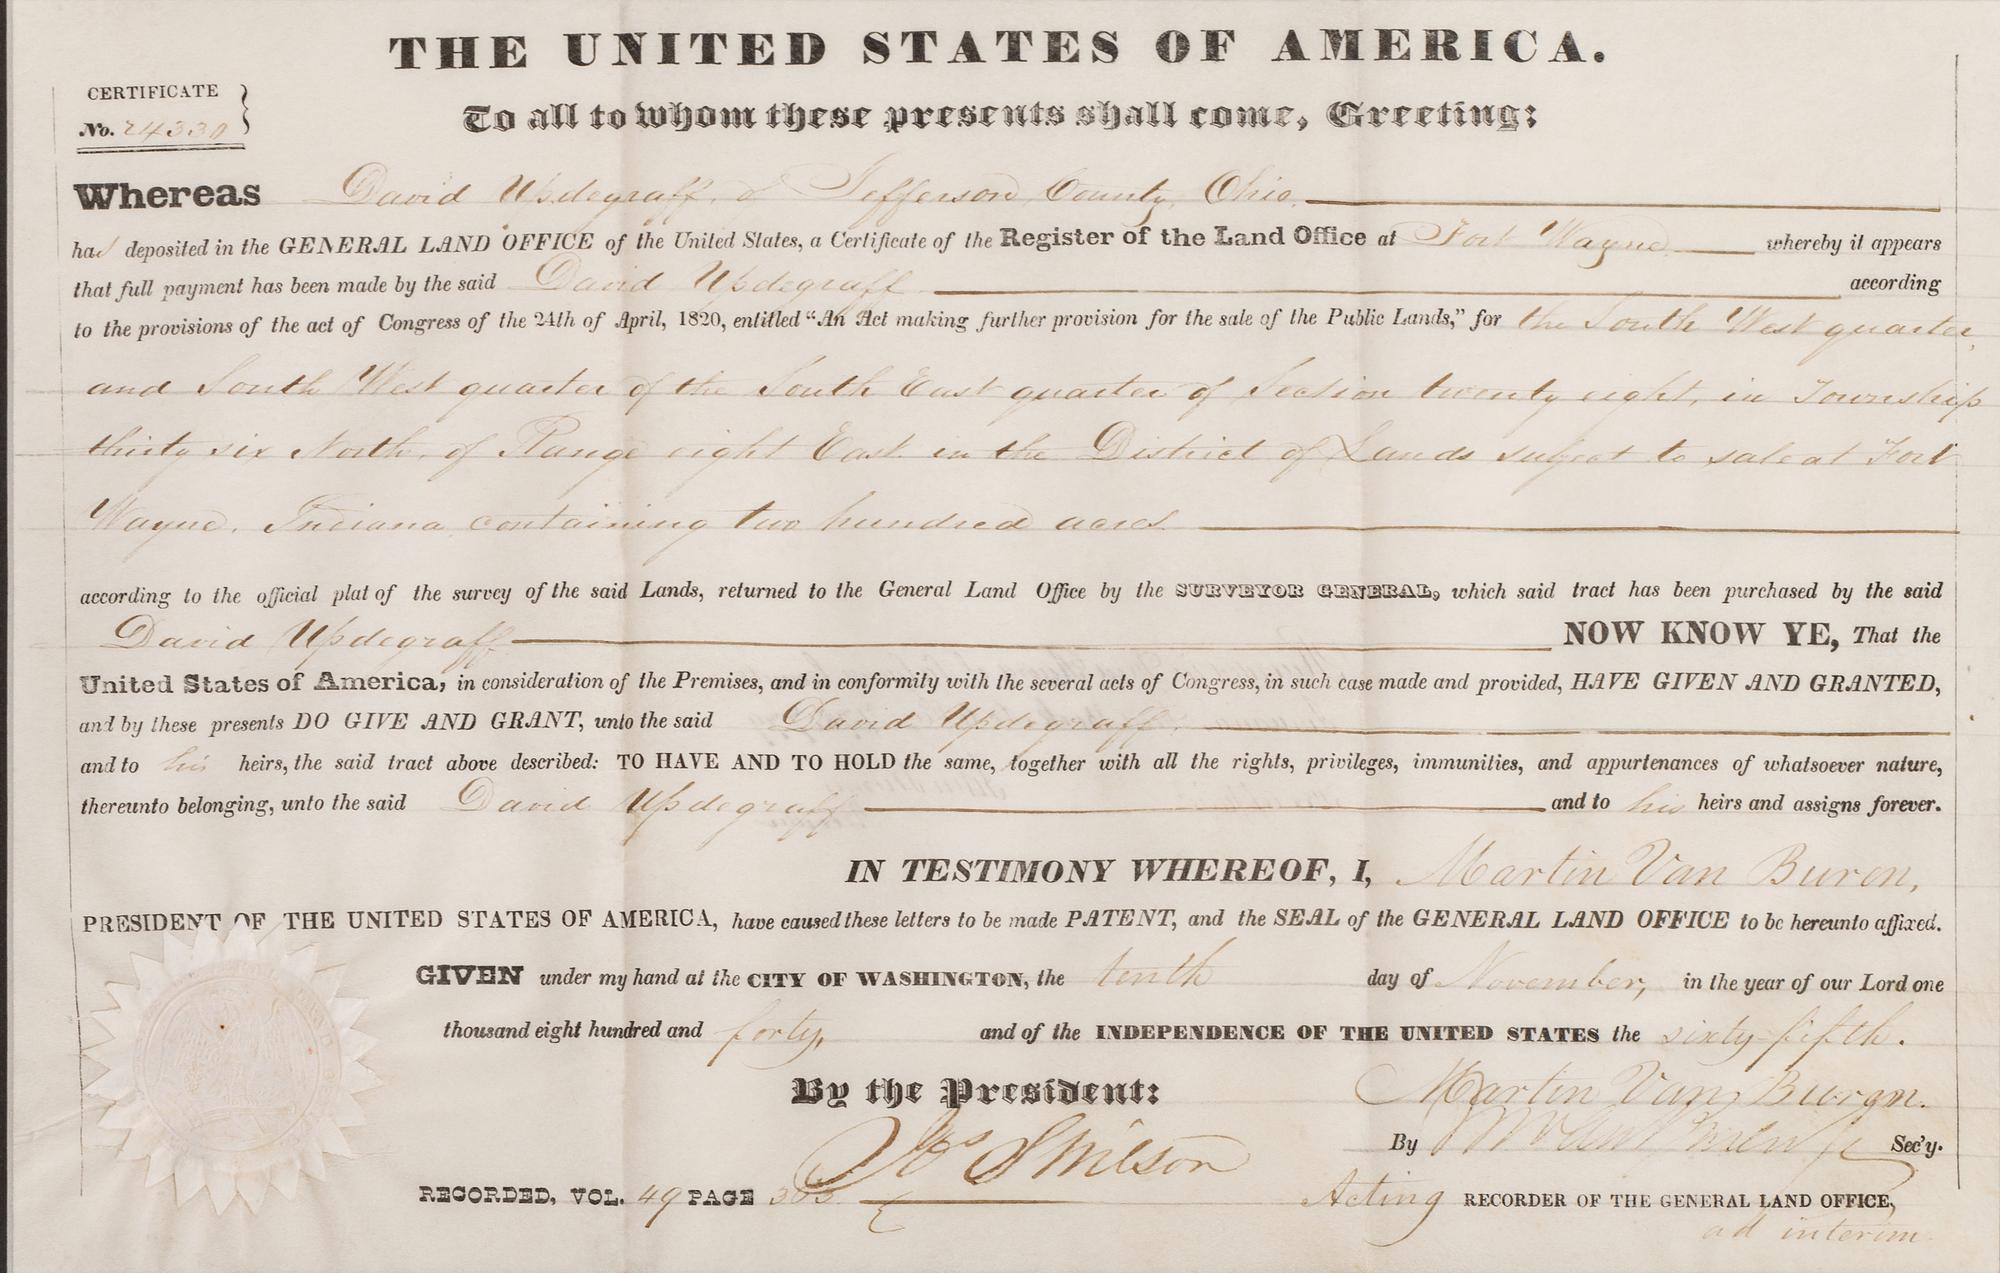 THE UNITED STATES OF AMERICA.
CERTIFICATE
No. 24330
To all to whom these presents shall come, Greeting:
Whereas David Updegraff, of Jefferson County, Ohio,
has deposited in the GENERAL LAND OFFICE of the United States, a Certificate of the Register of the Land Office at Fort Wayne whereby it appears
that full payment has been made by the said David Updegraff according
to the provisions of the act of Congress of the 24th of April, 1820, entitled "An Act making further provision for the sale of the Public Lands," for the South West quarter,
and South West quarter of the South East quarter of Section twenty eight, in Township
thirty six North, of Range eight East in the District of Lands subject to sale at Fort
Wayne, Indiana, containing two hundred acres
according to the official plat of the survey of the said Lands, returned to the General Land Office by the SURVEYOR GENERAL, which said tract has been purchased by the said
David Updegraff NOW KNOW YE, That the
United States of America, in consideration of the Premises, and in conformity with the several acts of Congress, in such case made and provided, HAVE GIVEN AND GRANTED,
and by these presents DO GIVE AND GRANT, unto the said David Updegraff,
and to his heirs, the said tract above described: TO HAVE AND TO HOLD the same, together with all the rights, privileges, immunities, and appurtenances of whatsoever nature,
thereunto belonging, unto the said David Updegraff and to his heirs and assigns forever.
IN TESTIMONY WHEREOF, I, Martin Van Buren,
PRESIDENT OF THE UNITED STATES OF AMERICA, have caused these letters to be made PATENT, and the SEAL of the GENERAL LAND OFFICE to be hereunto affixed.
GIVEN under my hand at the CITY OF WASHINGTON, the tenth day of November, in the year of our Lord one
thousand eight hundred and forty, and of the INDEPENDENCE OF THE UNITED STATES the sixty-fifth.
By the President: Martin Van Buren.
By Sec'y.
Jos S Wilson
RECORDED, VOL. 49 PAGE Acting RECORDER OF THE GENERAL LAND OFFICE,
ad interim